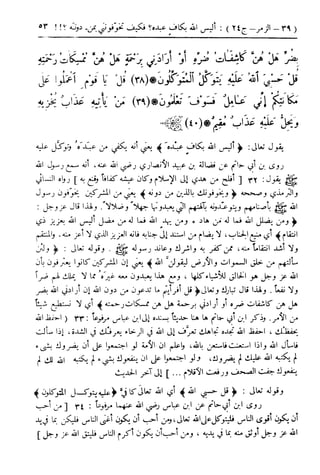 (٣٩ – الزمر– ج٢٤) : أليس الله بكاف عبده؟ فكيف تخوّفونني بمن دونه ؟!! ٥٣
بِضُرٍّ هَلْ هُنَّ كَاشِفَاتُ ضُرِّهِ أَوْ أَرَادَنِي بِرَحْمَةٍ هَلْ هُنَّ مُمْسِكَاتُ رَحْمَتِهِ
قُلْ حَسْبِيَ اللَّهُ عَلَيْهِ يَتَوَكَّلُ الْمُتَوَكِّلُونَ (٣٨) قُلْ يَا قَوْمِ اعْمَلُوا عَلَى
مَكَانَتِكُمْ إِنِّي عَامِلٌ فَسَوْفَ تَعْلَمُونَ (٣٩) مَنْ يَأْتِيهِ عَذَابٌ يُخْزِيهِ
وَيَحِلُّ عَلَيْهِ عَذَابٌ مُقِيمٌ (٤٠)
يقول تعالى: ﴿ أليس الله بكاف عبده ﴾ يعني أنه يكفي من عبده وتوكل عليه
روى بن أبي حاتم عن فضالة بن عبيد الأنصاري رضي الله عنه، أنه سمع رسول الله
يقول: ٣٢ [ أفلح من هدي إلى الإسلام وكان عيشه كفافاً وقنع به ] رواه النسائي
والترمذي وصححه ﴿ ويخوفونك بالذين من دونه ﴾ يعني من المشركين يخوفون رسول
الله بأصنامهم ويتوعدونه بآلهتهم التي يعبدونها جهلاً وضلالاً. ولهذا قال عز وجل :
﴿ ومن يضلل الله فما له من هاد • ومن يهد الله فما له من مضل أليس الله بعزيز ذي
انتقام ﴾ أي منيع الجناب، لا يضام من استند إلى جنابه فإنه العزيز الذي لا أعز منه، والمنتقم
ولا أشد انتقاماً منه، ممن كفر به وأشرك وعاند رسوله . وقوله تعالى : ﴿ ولئن
سألتهم من خلق السموات والأرض ليقولن الله ﴾ يعني إن المشركين كانوا يعترفون بأن
الله عز وجل هو الخالق للأشياء كلها ، ومع هذا يعبدون معه غيره مما لا يملك لهم ضراً
ولا نفعاً. ولهذا قال تبارك وتعالى ﴿ قل أفرأيتم ما تدعون من دون الله إن أرادني الله بضر
هل هن كاشفات ضره أو أرادني برحمة هل هن ممسكات رحمته ﴾ أي لا تستطيع شيئاً
من الأمر. وذكر ابن أبي حاتم ها هنا حديثاً بسنده إلى ابن عباس مرفوعاً : ٣٣ [ احفظ الله
يحفظك ، احفظ الله تجده تجاهك تعرف إلى الله في الرخاء يعرفك في الشدة، إذا سألت
فاسأل الله وإذا استعنت فاستعن بالله، واعلم ان الأمة لو اجتمعوا على أن يضروك بشيء
لم يكتبه الله عليك لم يضروك، ولو اجتمعوا على ان ينفعوك بشيء لم يكتبه الله لك لم
ينفعوك جفت الصحف ورفعت الأقلام ... ] إلى آخر الحديث
وقوله تعالى : ﴿ قل حسبي الله ﴾ أي الله تعالى كافيّ ﴿ عليه يتوكل المتوكلون ﴾
روى ابن أبي حاتم عن ابن عباس رضي الله عنهما مرفوعاً : ٣٤ [ من أحب
أن يكون أقوى الناس فليتوكل على الله تعالى، ومن أحب أن يكون أغنى الناس فليكن بما في يد
الله عز وجل أوثق منه بما في يديه ، ومن أحب أن يكون أكرم الناس فليتق الله عز وجل ]